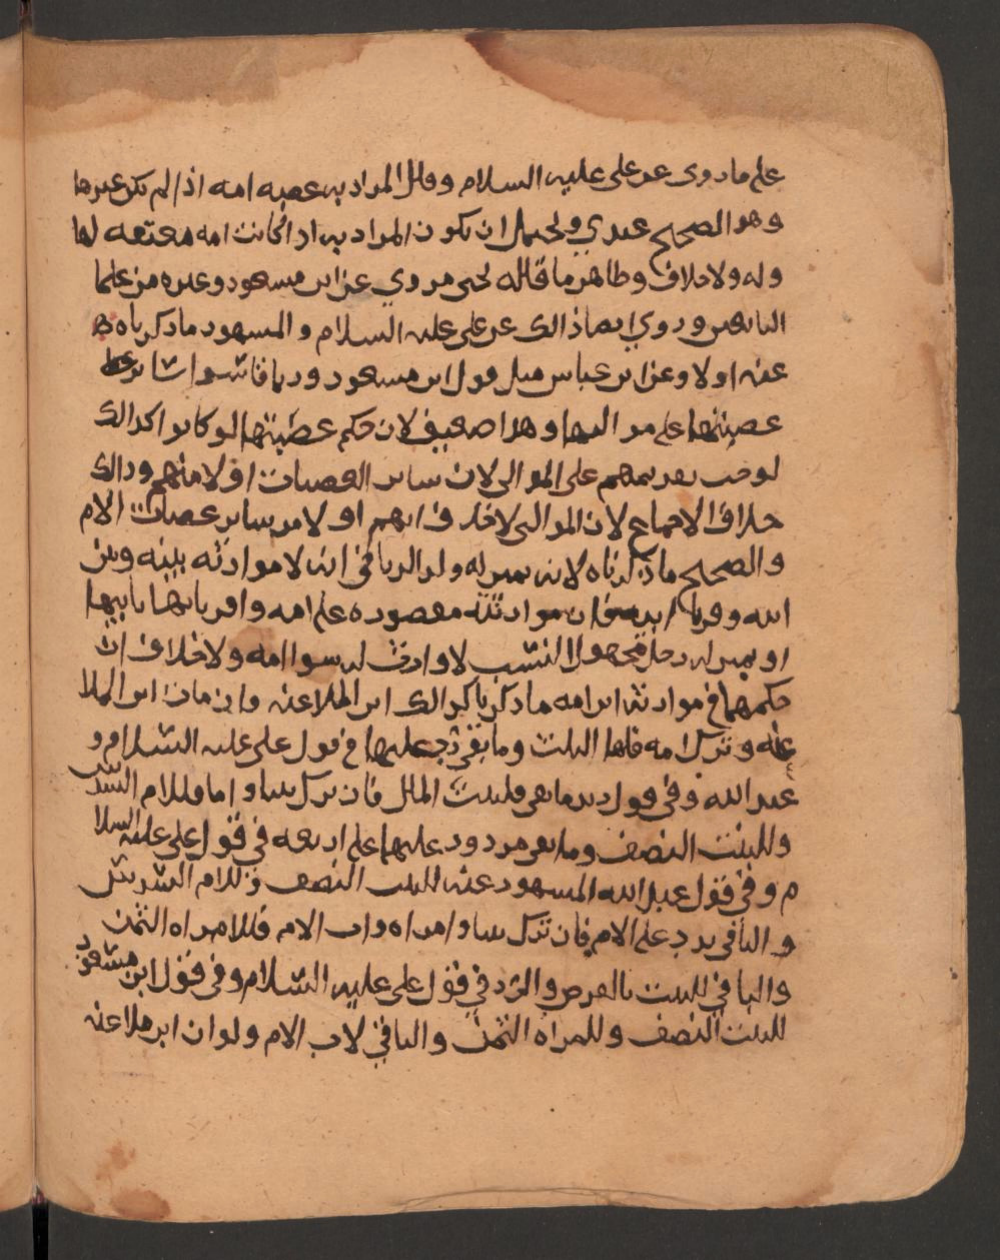 على ما روى عن على عليه السلام وقال المراد به عصبه امه اذا لم يكن غيرها
وهو الصحيح عندي ويحتمل ان يكون المراد به اذا كانت امه معتقه لها
وله ولا خلاف وظاهر ما قاله يحيى مروي عن ابن مسعود وغيره من علما
التابعين وروي ايضا ذالك عن على عليه السلام والمشهور ما ذكرناه
عنه اولا وعن ابن عباس مثل قول ابن مسعود وربما قاسوا سائر
عصبتها على مواليها وهذا ضعيف لان حكم عصبتها لو كانوا كذالك
لوجب تقديمهم على الموالى لان سائر العصبات اولا منهم وذالك
خلاف الاجماع لان الموالى لا خلاف انهم اولا من سائر عصبات الام
والصحيح ما ذكرناه لانه بمنزله ولد الزنا في انه لا موارثه بينه وبين
ابيه وقربا ابيه فان موارثته مقصوره على امه واقربائها بابيها
او بمنزله رجل مجهول النسب لا وارث له سوا امه ولا خلاف ان
حكمهما في موارثه ابن امه ما ذكرنا كذالك ابن الملاعنه وان مات ابن الملا
عنه وترك امه فلها الثلث وما بقي رد عليها في قول على عليه السلام و
عبد الله وفي قول زيد ما بقي فلبيت المال فان ترك بنتا واما فللام السدس
وللبنت النصف وما بقي مردود عليهما على اربعه في قول على عليه السلا
م وفي قول عبد الله المشهور عنه للبنت النصف وللام السدس
والباقي يرد على الام فان ترك بنتا وامراه واب الام فللامراه الثمن
والباقي للبنت بالفرض والرد في قول على عليه السلام وفي قول ابن مسعود
للبنت النصف وللمراه الثمن والباقي لاب الام ولو ان ابن ملاعنه